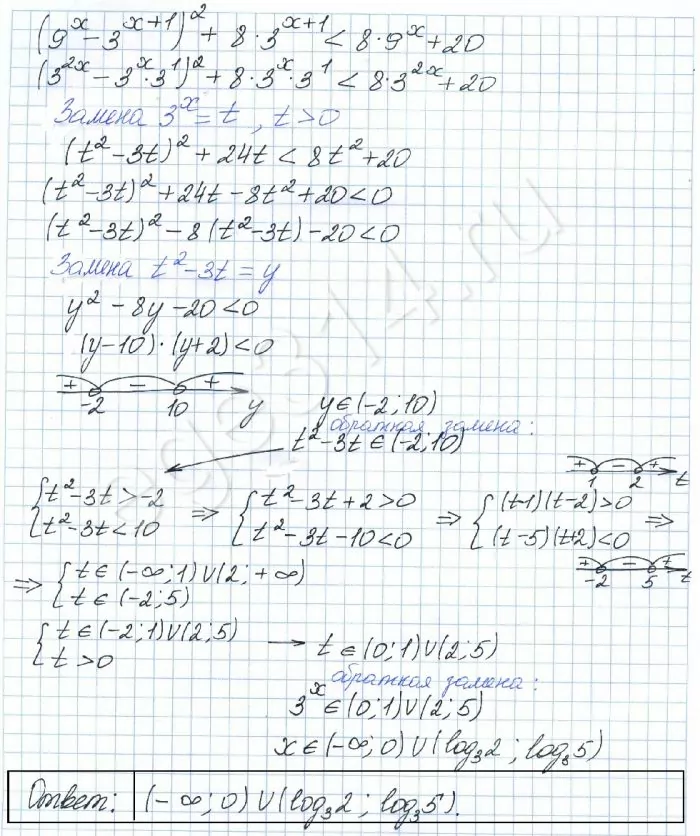 (9^x - 3^(x+1))^2 + 8·3^(x+1) < 8·9^x + 20
(3^(2x) - 3^x·3^1)^2 + 8·3^x·3^1 < 8·3^(2x) + 20
Замена 3^x = t, t > 0
(t^2 - 3t)^2 + 24t < 8t^2 + 20
(t^2 - 3t)^2 + 24t - 8t^2 + 20 < 0
(t^2 - 3t)^2 - 8(t^2 - 3t) - 20 < 0
Замена t^2 - 3t = y
y^2 - 8y - 20 < 0
(y - 10)·(y + 2) < 0
+ - +
-2 10 y
y ∈ (-2; 10)
обратная замена:
t^2 - 3t ∈ (-2; 10)
+ - +
1 2 t
{ t^2 - 3t > -2 ⇒ { t^2 - 3t + 2 > 0 ⇒ { (t-1)(t-2) > 0 ⇒
{ t^2 - 3t < 10 { t^2 - 3t - 10 < 0 { (t-5)(t+2) < 0
+ - +
-2 5 t
⇒ { t ∈ (-∞; 1) ∪ (2; +∞)
{ t ∈ (-2; 5)
{ t ∈ (-2; 1) ∪ (2; 5)
{ t > 0 → t ∈ (0; 1) ∪ (2; 5)
обратная замена:
3^x ∈ (0; 1) ∪ (2; 5)
x ∈ (-∞; 0) ∪ (log₃2; log₃5)
Ответ: (-∞; 0) ∪ (log₃2; log₃5).